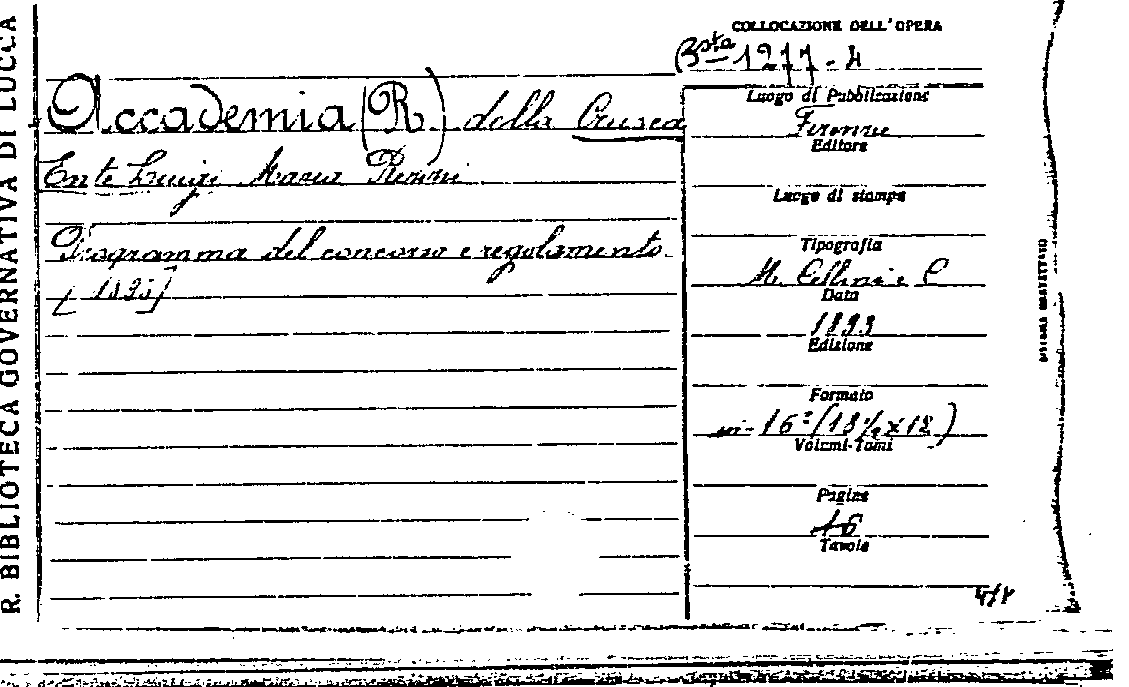 R. BIBLIOTECA GOVERNATIVA DI LUCCA
COLLOCAZIONE DELL'OPERA
Bsta 1277-4
Accademia (R.) della Crusca
Ente Luigi Maria Rezzi
Programma del concorso e regolamento.
[1893]
Luogo di Pubblicazione
Firenze
Editore
Luogo di stampa
Tipografia
M. Cellini e C
Data
1893
Edizione
Formato
in-16º (18½ x 12)
Volumi-Tomi
Pagine
16
Tavole